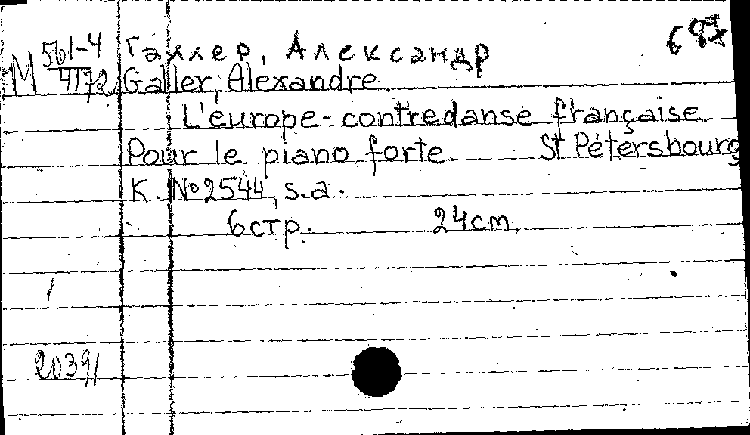 Галлер, Александр
М 561-4/4172 Galler, Alexandre
L'europe-contredanse française
Pour le piano forte St Pétersbourg
K. No 2544, s.a.
6 стр. 24 cm.
1
20391